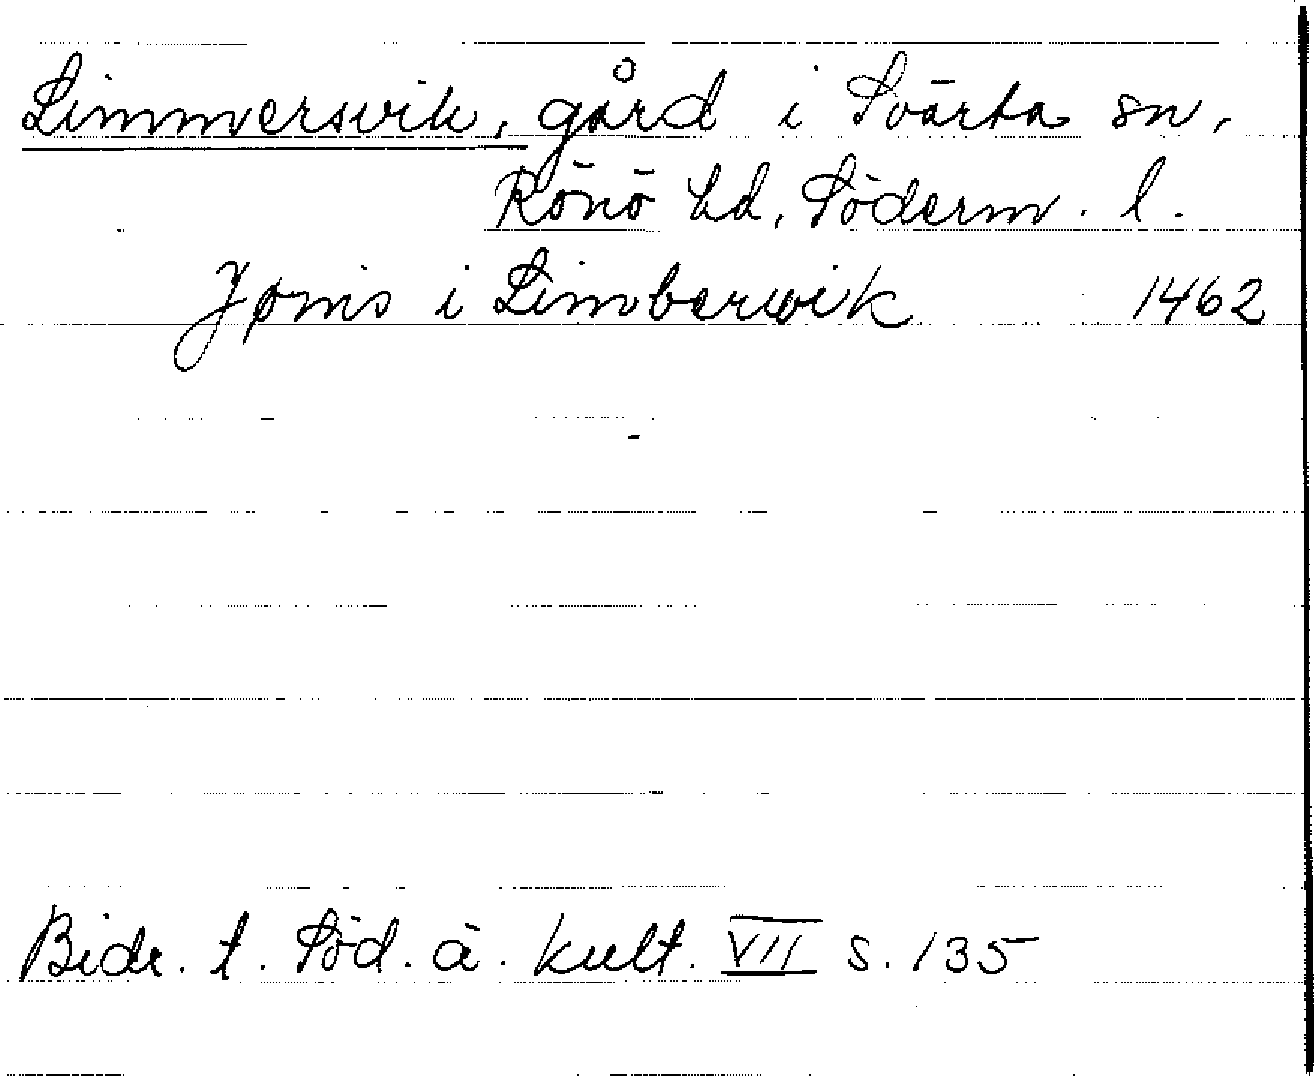 Limmersvik, gård i Svärta sn,
Rönö hd, Söderm. l.
Jønis i Limberwik 1462
Bidr. t. Söd. ä. kult. VII s. 135